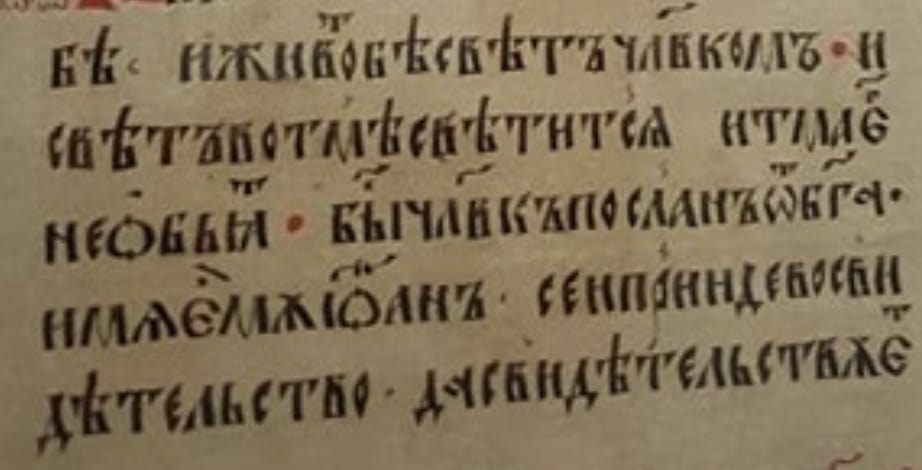 бѣ· иживⷮобѣсвѣтъчл҃вкомъ • и
свѣтъвотмѣсвѣтитсѧ итмає҃
неѻбьꙗⷮ • бы҃чл҃вкъпосланъѿбг҃а·
имѧємѫіѻ҃анъ · сеиприидевосви
дѣтельство · дасвидѣтельствѫєⷮ